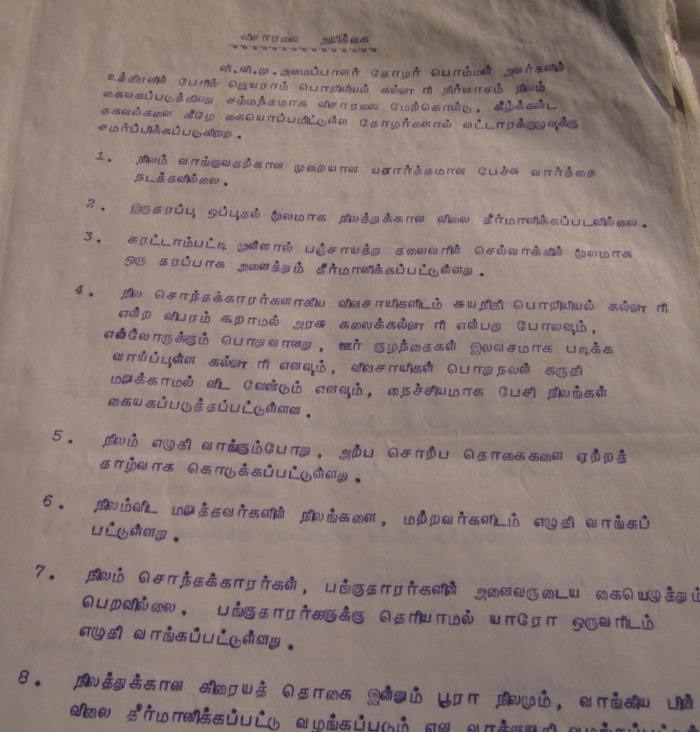 விசாரணை அறிக்கை
வி.வி.மு. அமைப்பாளர் தோழர் பொம்மன் அவர்களின்
உத்திரவின் பேரில் ஜெயராம் பொறியியல் கல்லூரி நிர்வாகம் நிலம்
கையகப்படுத்தியது சம்மந்தமாக விசாரணை மேற்கொண்டு, கீழ்க்கண்ட
தகவல்களை கீழே கையொப்பமிட்டுள்ள தோழர்களால் வட்டாரக்குழுவுக்கு
சமர்ப்பிக்கப்படுகிறது.
1. நிலம் வாங்குவதற்கான முறையான யதார்த்தமான பேச்சு வார்த்தை
நடக்கவில்லை.
2. இருகரப்பு ஒப்புதல் மூலமாக நிலத்துக்கான விலை தீர்மானிக்கப்படவில்லை.
3. கரட்டாம்பட்டி முன்னால் பஞ்சாயத்து தலைவரின் செல்வாக்கின் மூலமாக
ஒரு தரப்பாக அனைத்தும் தீர்மானிக்கப்பட்டுள்ளது.
4. நில சொந்தக்காரர்களாகிய விவசாயிகளிடம் சுயநிதி பொறியியல் கல்லூரி
என்ற விபரம் கூறாமல் அரசு கலைக்கல்லூரி என்பது போலவும்,
எல்லோருக்கும் பொதுவானது, ஊர் குழந்தைகள் இலவசமாக படிக்க
வாய்ப்புள்ள கல்லூரி எனவும், விவசாயிகள் பொதுநலன் கருதி
மறுக்காமல் விட வேண்டும் எனவும், நைச்சியமாக பேசி நிலங்கள்
கையகப்படுத்தப்பட்டுள்ளன.
5. நிலம் எழுதி வாங்கும்போது, அற்ப சொற்ப தொகைகளை ஏற்றத்
தாழ்வாக கொடுக்கப்பட்டுள்ளது.
6. நிலம்விட மறுத்தவர்களின் நிலங்களை, மற்றவர்களிடம் எழுதி வாங்கப்
பட்டுள்ளது.
7. நிலம் சொந்தக்காரர்கள், பங்குதாரர்களின் அனைவருடைய கையெழுத்தும்
பெறவில்லை. பங்குதாரர்களுக்கு தெரியாமல் யாரோ ஒருவரிடம்
எழுதி வாங்கப்பட்டுள்ளது.
8. நிலத்துக்கான கிரையத் தொகை இன்னும் பூரா நிலமும், வாங்கிய பின்
விலை தீர்மானிக்கப்பட்டு வழங்கப்படும் என வாக்குறுதி